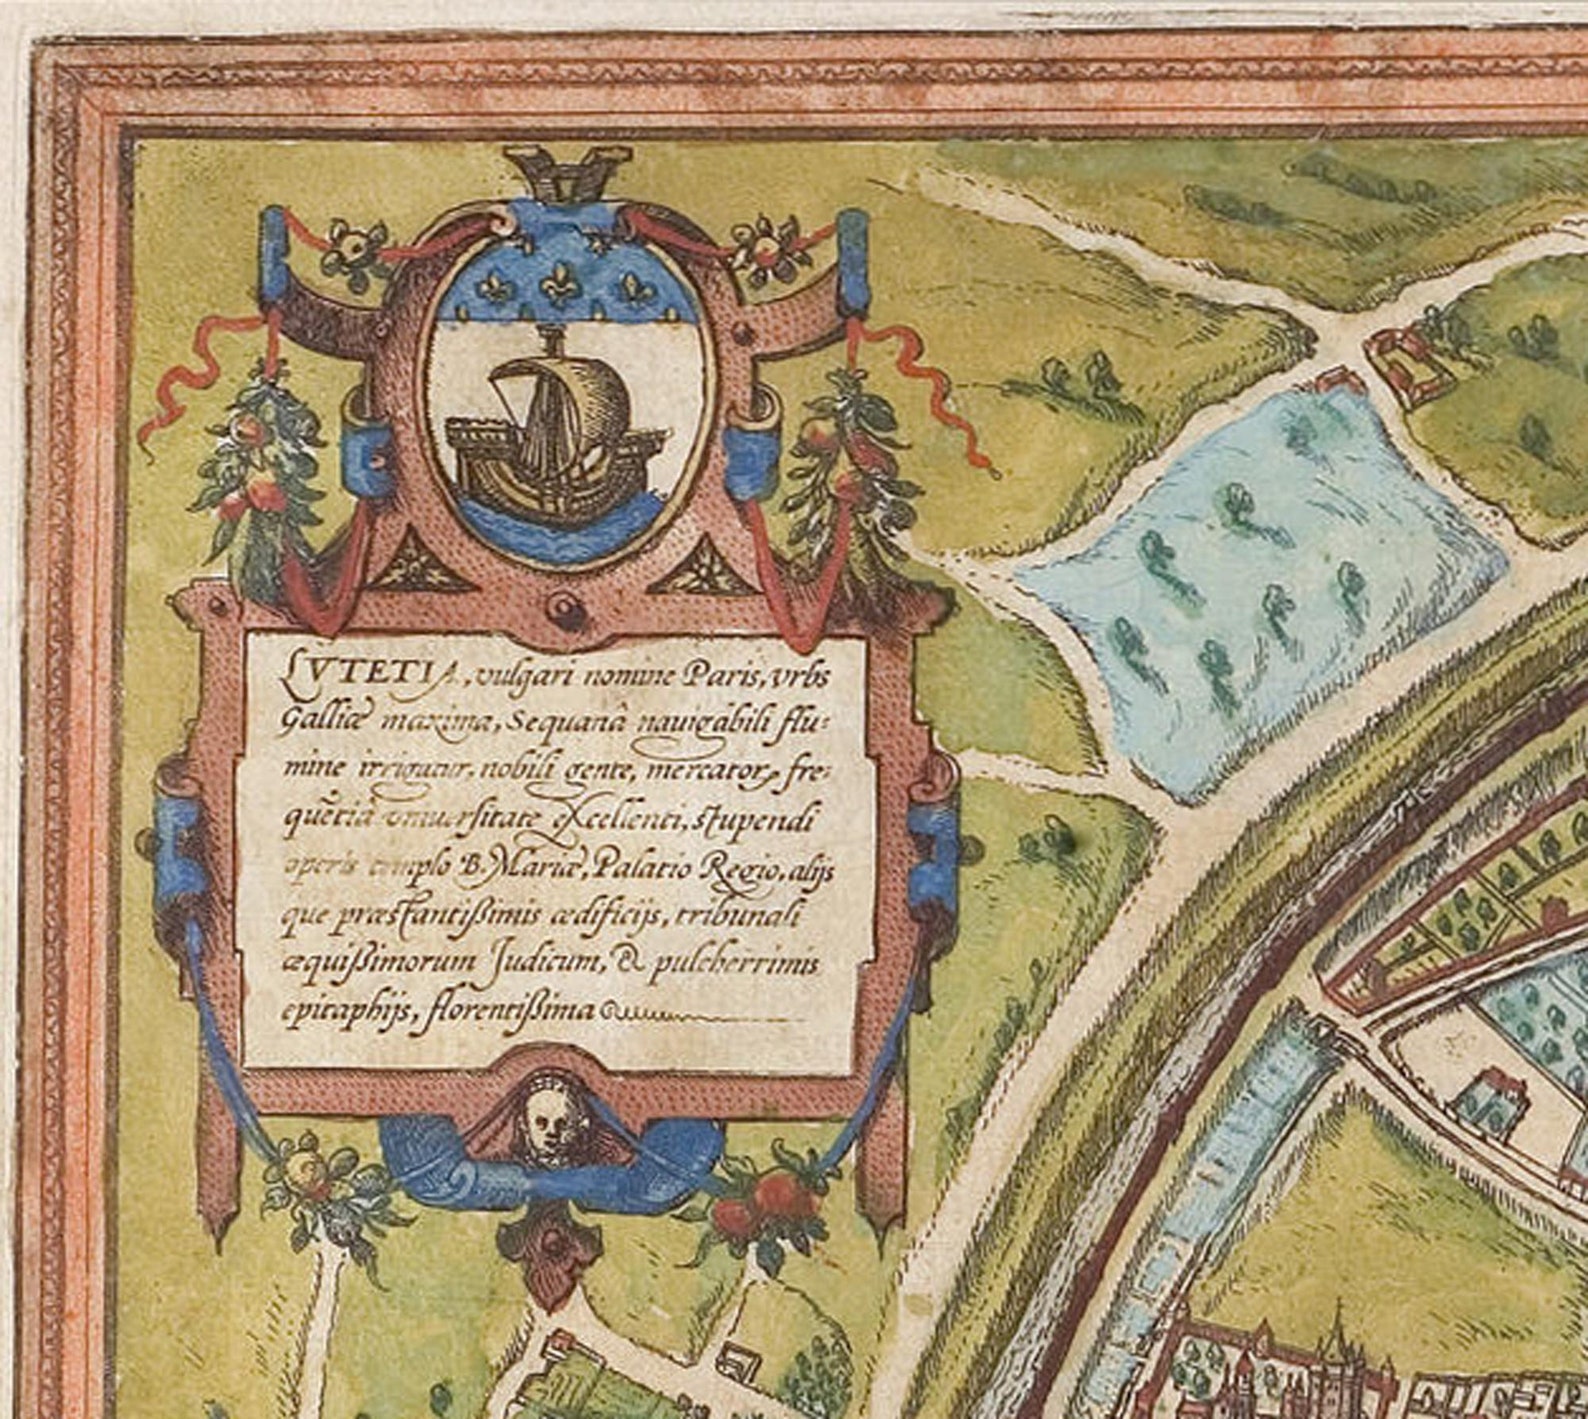 LVTETIA, vulgari nomine Paris, vrbs
Galliæ maxima, Sequanâ nauigabili flu:
mine irrigatur, nobili gente, mercatorꝝ fre:
quētiâ vniuersitate eXcellenti, stupendi
operis templo B. Mariæ, Palatio Regio, alijs
que præstantißimis ædificijs, tribunali
æquißimorum Judicum, & pulcherrimis
epitaphijs, florentißima